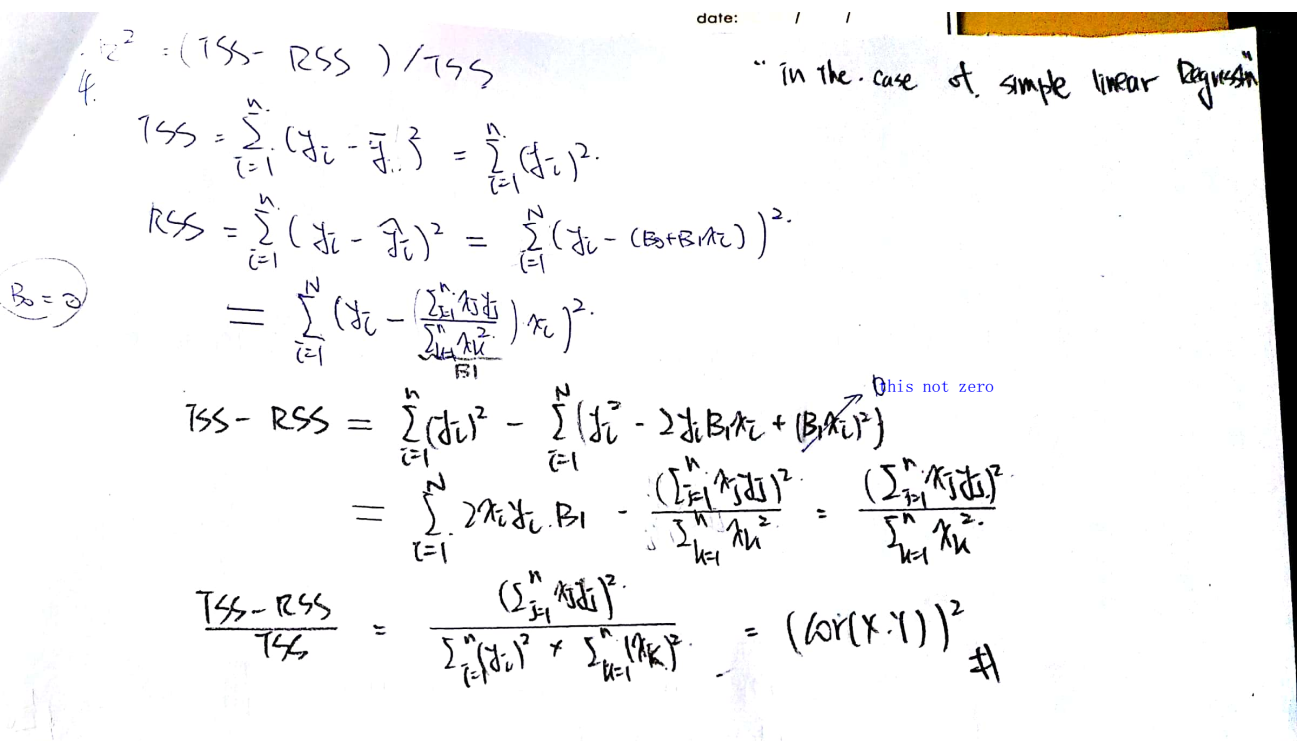 date: / /
R² = (TSS - RSS) / TSS
"in the case of simple linear Regression"
4.
TSS = ∑_{i=1}^{n} (y_i - ȳ)² = ∑_{i=1}^{n} (y_i)².
RSS = ∑_{i=1}^{n} (y_i - ŷ_i)² = ∑_{i=1}^{N} (y_i - (B₀+B₁x_i))².
B₀ = 0
= ∑_{i=1}^{N} (y_i - (∑_{j=1}^{n} x_j y_j / ∑_{k=1}^{n} x_k²) x_i)².
B1
0
this not zero
TSS - RSS = ∑_{i=1}^{n} (y_i)² - ∑_{i=1}^{N} (y_i² - 2y_i B₁x_i + (B₁x_i)²)
= ∑_{i=1}^{N} 2x_i y_i . B₁ - (∑_{j=1}^{n} x_j y_j)² / ∑_{k=1}^{n} x_k² = (∑_{j=1}^{n} x_j y_j)² / ∑_{k=1}^{n} x_k²
(TSS - RSS) / TSS = (∑_{j=1}^{n} x_j y_j)² / (∑_{i=1}^{n} (y_i)² × ∑_{k=1}^{n} (x_k)²) = (Cor(X.Y))² #